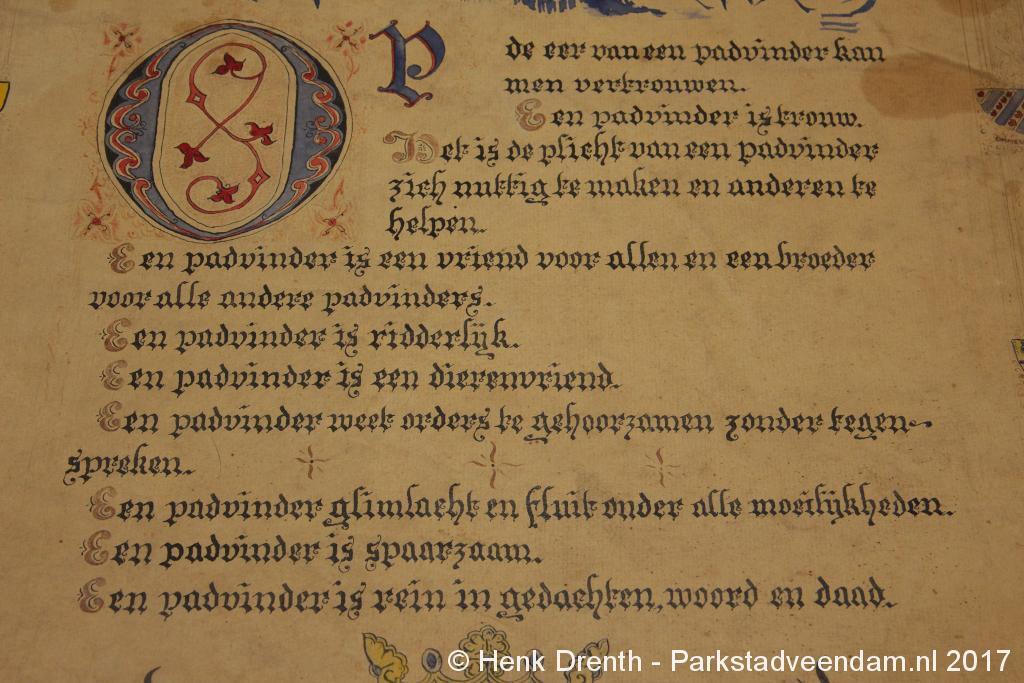 OP de eer van een padvinder kan
men vertrouwen.
Een padvinder is trouw.
Het is de plicht van een padvinder
zich nuttig te maken en anderen te
helpen.
Een padvinder is een vriend voor allen en een broeder
voor alle andere padvinders.
Een padvinder is ridderlijk.
Een padvinder is een dierenvriend.
Een padvinder weet orders te gehoorzamen zonder tegen-
spreken.
Een padvinder glimlacht en fluit onder alle moeilijkheden.
Een padvinder is spaarzaam.
Een padvinder is rein in gedachten, woord en daad.
© Henk Drenth - Parkstadveendam.nl 2017